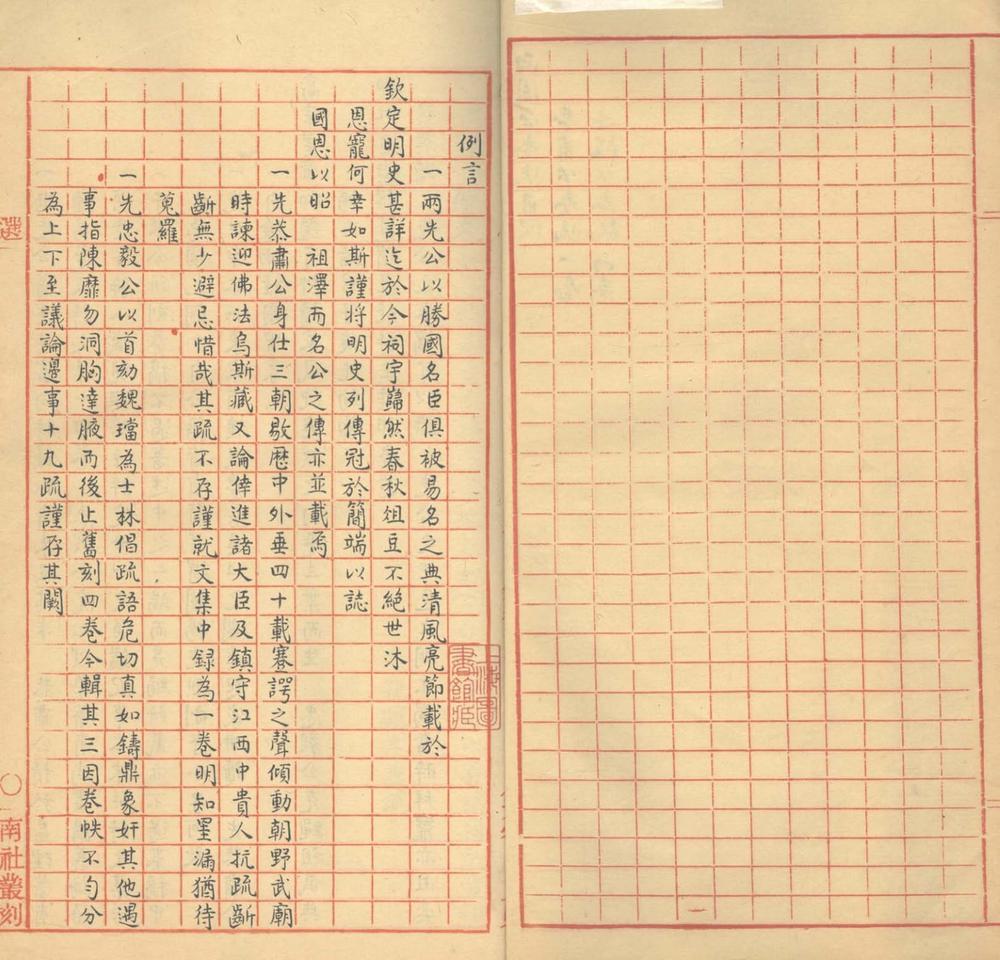 例言
一兩先公以勝國名臣俱被易名之典清風亮節載於
欽定明史甚詳迄於今祠宇巋然春秋俎豆不絕世沐
恩寵何幸如斯謹將明史列傳冠於簡端以誌
國恩以昭　祖澤而名公之傳亦並載焉
一先恭肅公身仕三朝敭歷中外垂四十載蹇諤之聲傾動朝野武廟
時諫迎佛法烏斯藏又論倖進諸大臣及鎮守江西中貴人抗疏齗
齗無少避忌惜哉其疏不存謹就文集中録為一卷明知罣漏猶待
蒐羅
一先忠毅公以首劾魏璫為士林倡疏語危切真如鑄鼎象奸其他遇
事指陳靡勿洞胸達腋而後止舊刻四卷今輯其三因卷帙不勻分
為上下至議論邊事十九疏謹存其闕
選
南社叢刻
上海圖書館藏